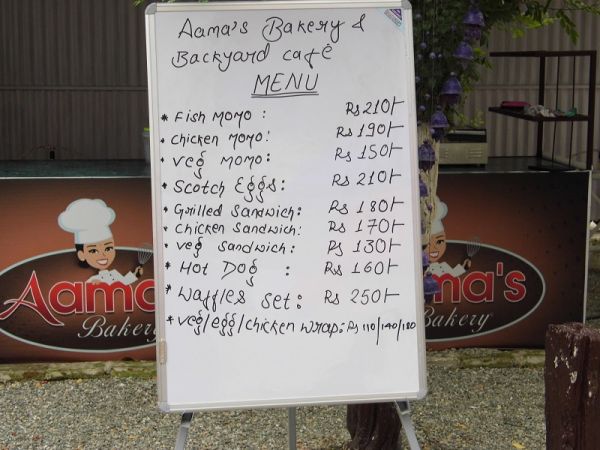 Aama's Bakery &
Backyard café
MENU
* Fish MOMO : Rs 210/-
* Chicken MOMO: Rs 190/-
* Veg MOMO: Rs 150/-
* Scotch Eggs: Rs 210/-
* Grilled Sandwich: Rs 180/-
* Chicken Sandwich: Rs 170/-
* Veg Sandwich: Rs 130/-
* Hot Dog : Rs 160/-
* Waffles Set: Rs 250/-
* Veg/egg/chicken Wrap: Rs 110/140/180
Aama
Bakery
ma's
Bakery